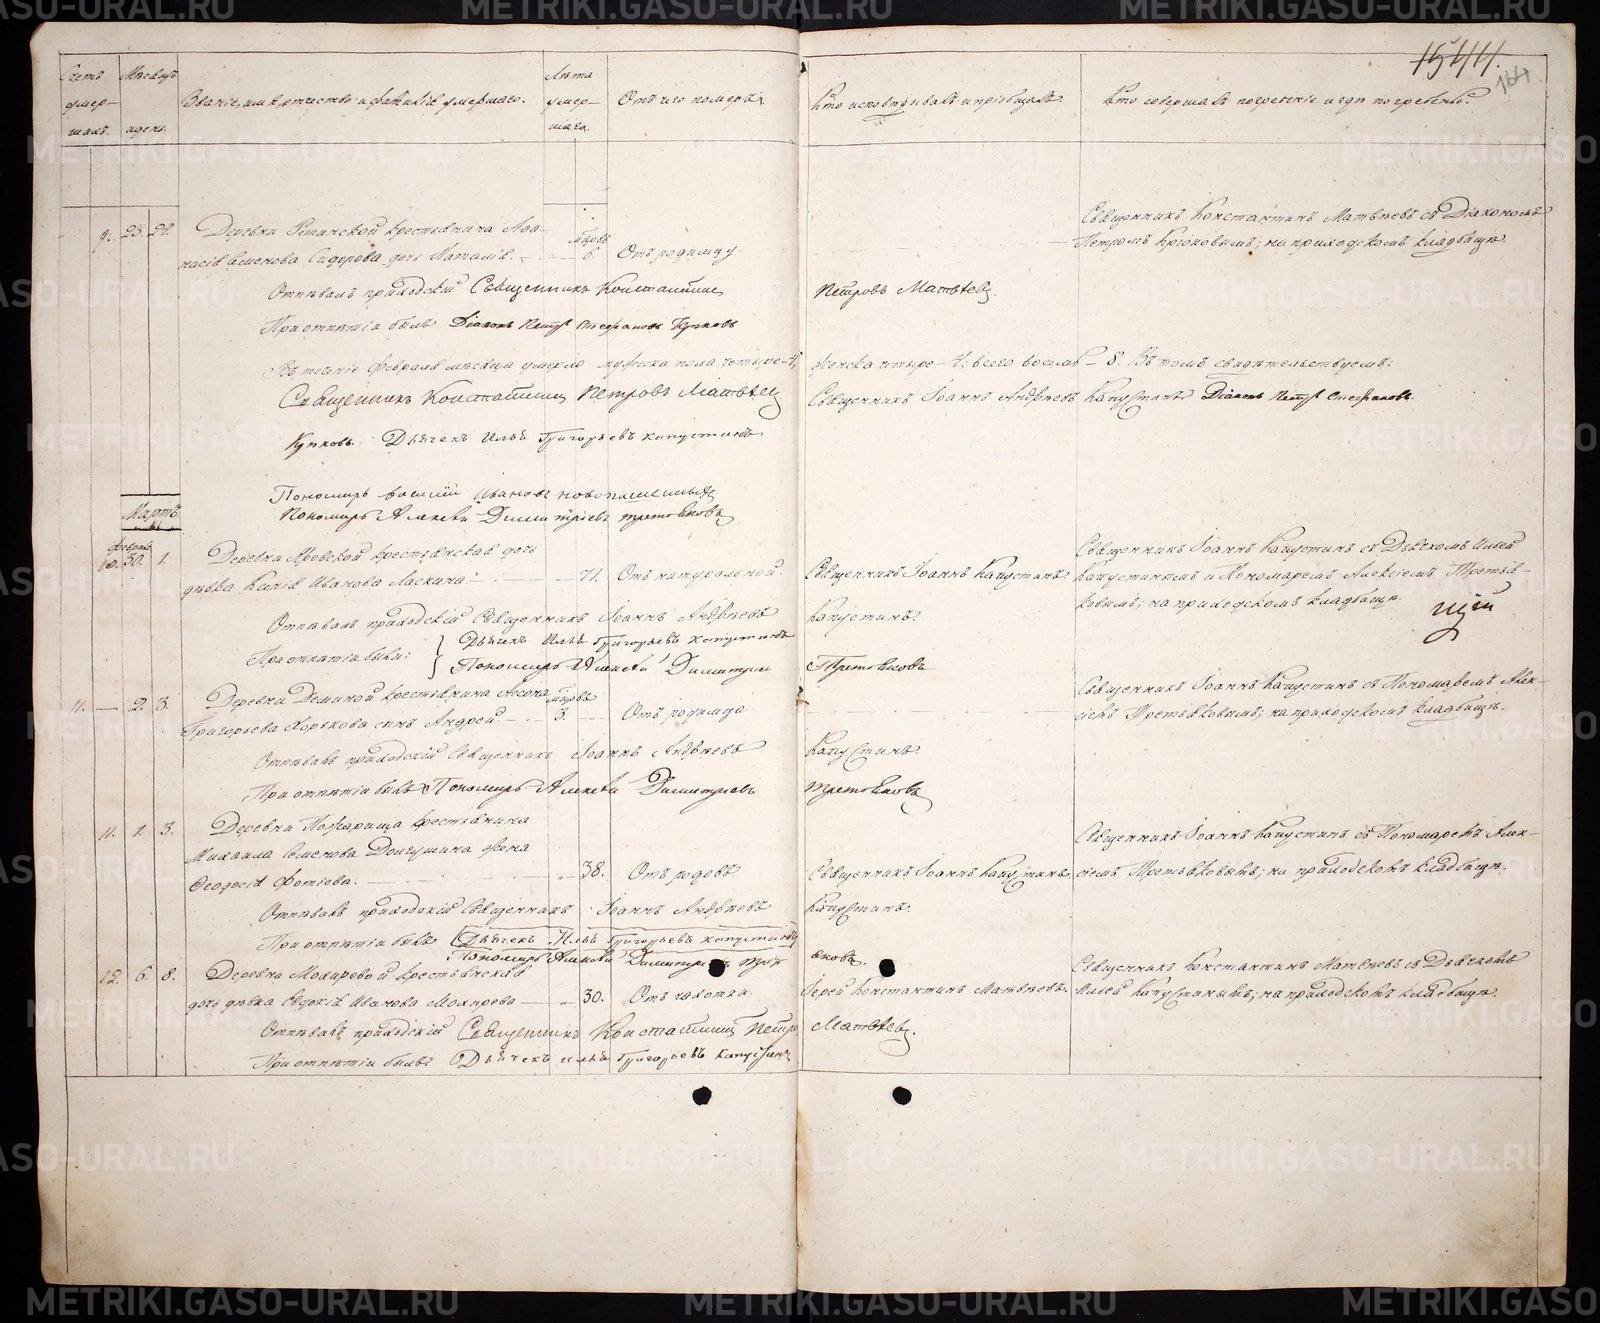 Счетъ умер-шихъ.
Мѣсяцъ и день.
Званіе, имя, отчество и фамилія умершаго.
Лѣта умер-шаго.
Отъ чего померъ.
Кто исповѣдывалъ и пріобщалъ.
Кто совершалъ погребеніе и гдѣ погребены.
1544.
164
9. 23. 24. Деревни крестьянина Аѳа-
насія Семенова Сидорова дочь Наталія. мѣсяцъ 6. Отъ родимцу
Священникъ Константинъ Матвѣевъ съ Діакономъ
Петромъ Крюковымъ; на приходскомъ кладбищѣ.
Отпѣвалъ приходскій Священникъ Константинъ Петровъ Матвѣевъ.
При отпѣтіи былъ Діаконъ Петръ Стефановъ Крюковъ
Въ теченіе Февраля мѣсяца умерло мужеска пола четыре - 4, женска четыре - 4, всего восемь - 8. Въ томъ свидѣтельствуемъ:
Священникъ Константинъ Петровъ Матвѣевъ Священникъ Іоаннъ Андреевъ Капустинъ Діаконъ Петръ Стефановъ
Крюковъ. Дьячекъ Илья Григорьевъ Капустинъ
Пономарь Василій Ивановъ
Пономарь Алексѣй Димитріевъ Третьяковъ
Мартъ
Февраля
10. 30. 1. Деревни крестьянская дочь
дѣвка Ксенія Иванова Ласкина. 71. Отъ натуральной. Священникъ Іоаннъ Капустинъ
Священникъ Іоаннъ Капустинъ съ Дьячкомъ Ильей
Капустинымъ и Пономаремъ Алексіемъ Третья-
ковымъ; на приходскомъ кладбищѣ.
Отпѣвалъ приходскій Священникъ Іоаннъ Андреевъ Капустинъ.
При отпѣтіи были: Дьячекъ Илья Григорьевъ Капустинъ
Пономарь Алексѣй Димитріевъ Третьяковъ
11. — 2. 3. Деревни Деминой крестьянина
Григорьева Хорькова сынъ Андрей мѣсяцъ 3. Отъ родимца
Священникъ Іоаннъ Капустинъ съ Пономаремъ Алек-
сіемъ Третьяковымъ; на приходскомъ кладбищѣ.
Отпѣвалъ приходскій Священникъ Іоаннъ Андреевъ Капустинъ
При отпѣтіи былъ Пономарь Алексѣй Димитріевъ Третьяковъ
11. 1. 3. Деревни Пожарища крестьянина
Михаила Семенова жена
Ѳеодосія Фотіева. 38. Отъ родовъ Священникъ Іоаннъ Капустинъ
Священникъ Іоаннъ Капустинъ съ Пономаремъ Алек-
сіемъ Третьяковымъ; на приходскомъ кладбищѣ.
Отпѣвалъ приходскій Священникъ Іоаннъ Андреевъ Капустинъ.
При отпѣтіи былъ Дьячекъ Илья Григорьевъ Капустинъ
Пономарь Алексѣй Димитріевъ Третьяковъ.
12. 6. 8. Деревни Мокиревой крестьянская
дочь дѣвка Евдокія Иванова 30. Отъ чахотки Іерей Константинъ Матвѣевъ.
Священникъ Константинъ Матвѣевъ съ Дьячкомъ
Ильей Капустинымъ; на приходскомъ кладбищѣ.
Отпѣвалъ приходскій Священникъ Константинъ Петровъ Матвѣевъ.
При отпѣтіи былъ Дьячекъ Илья Григорьевъ Капустинъ
METRIKI.GASO-URAL.RU